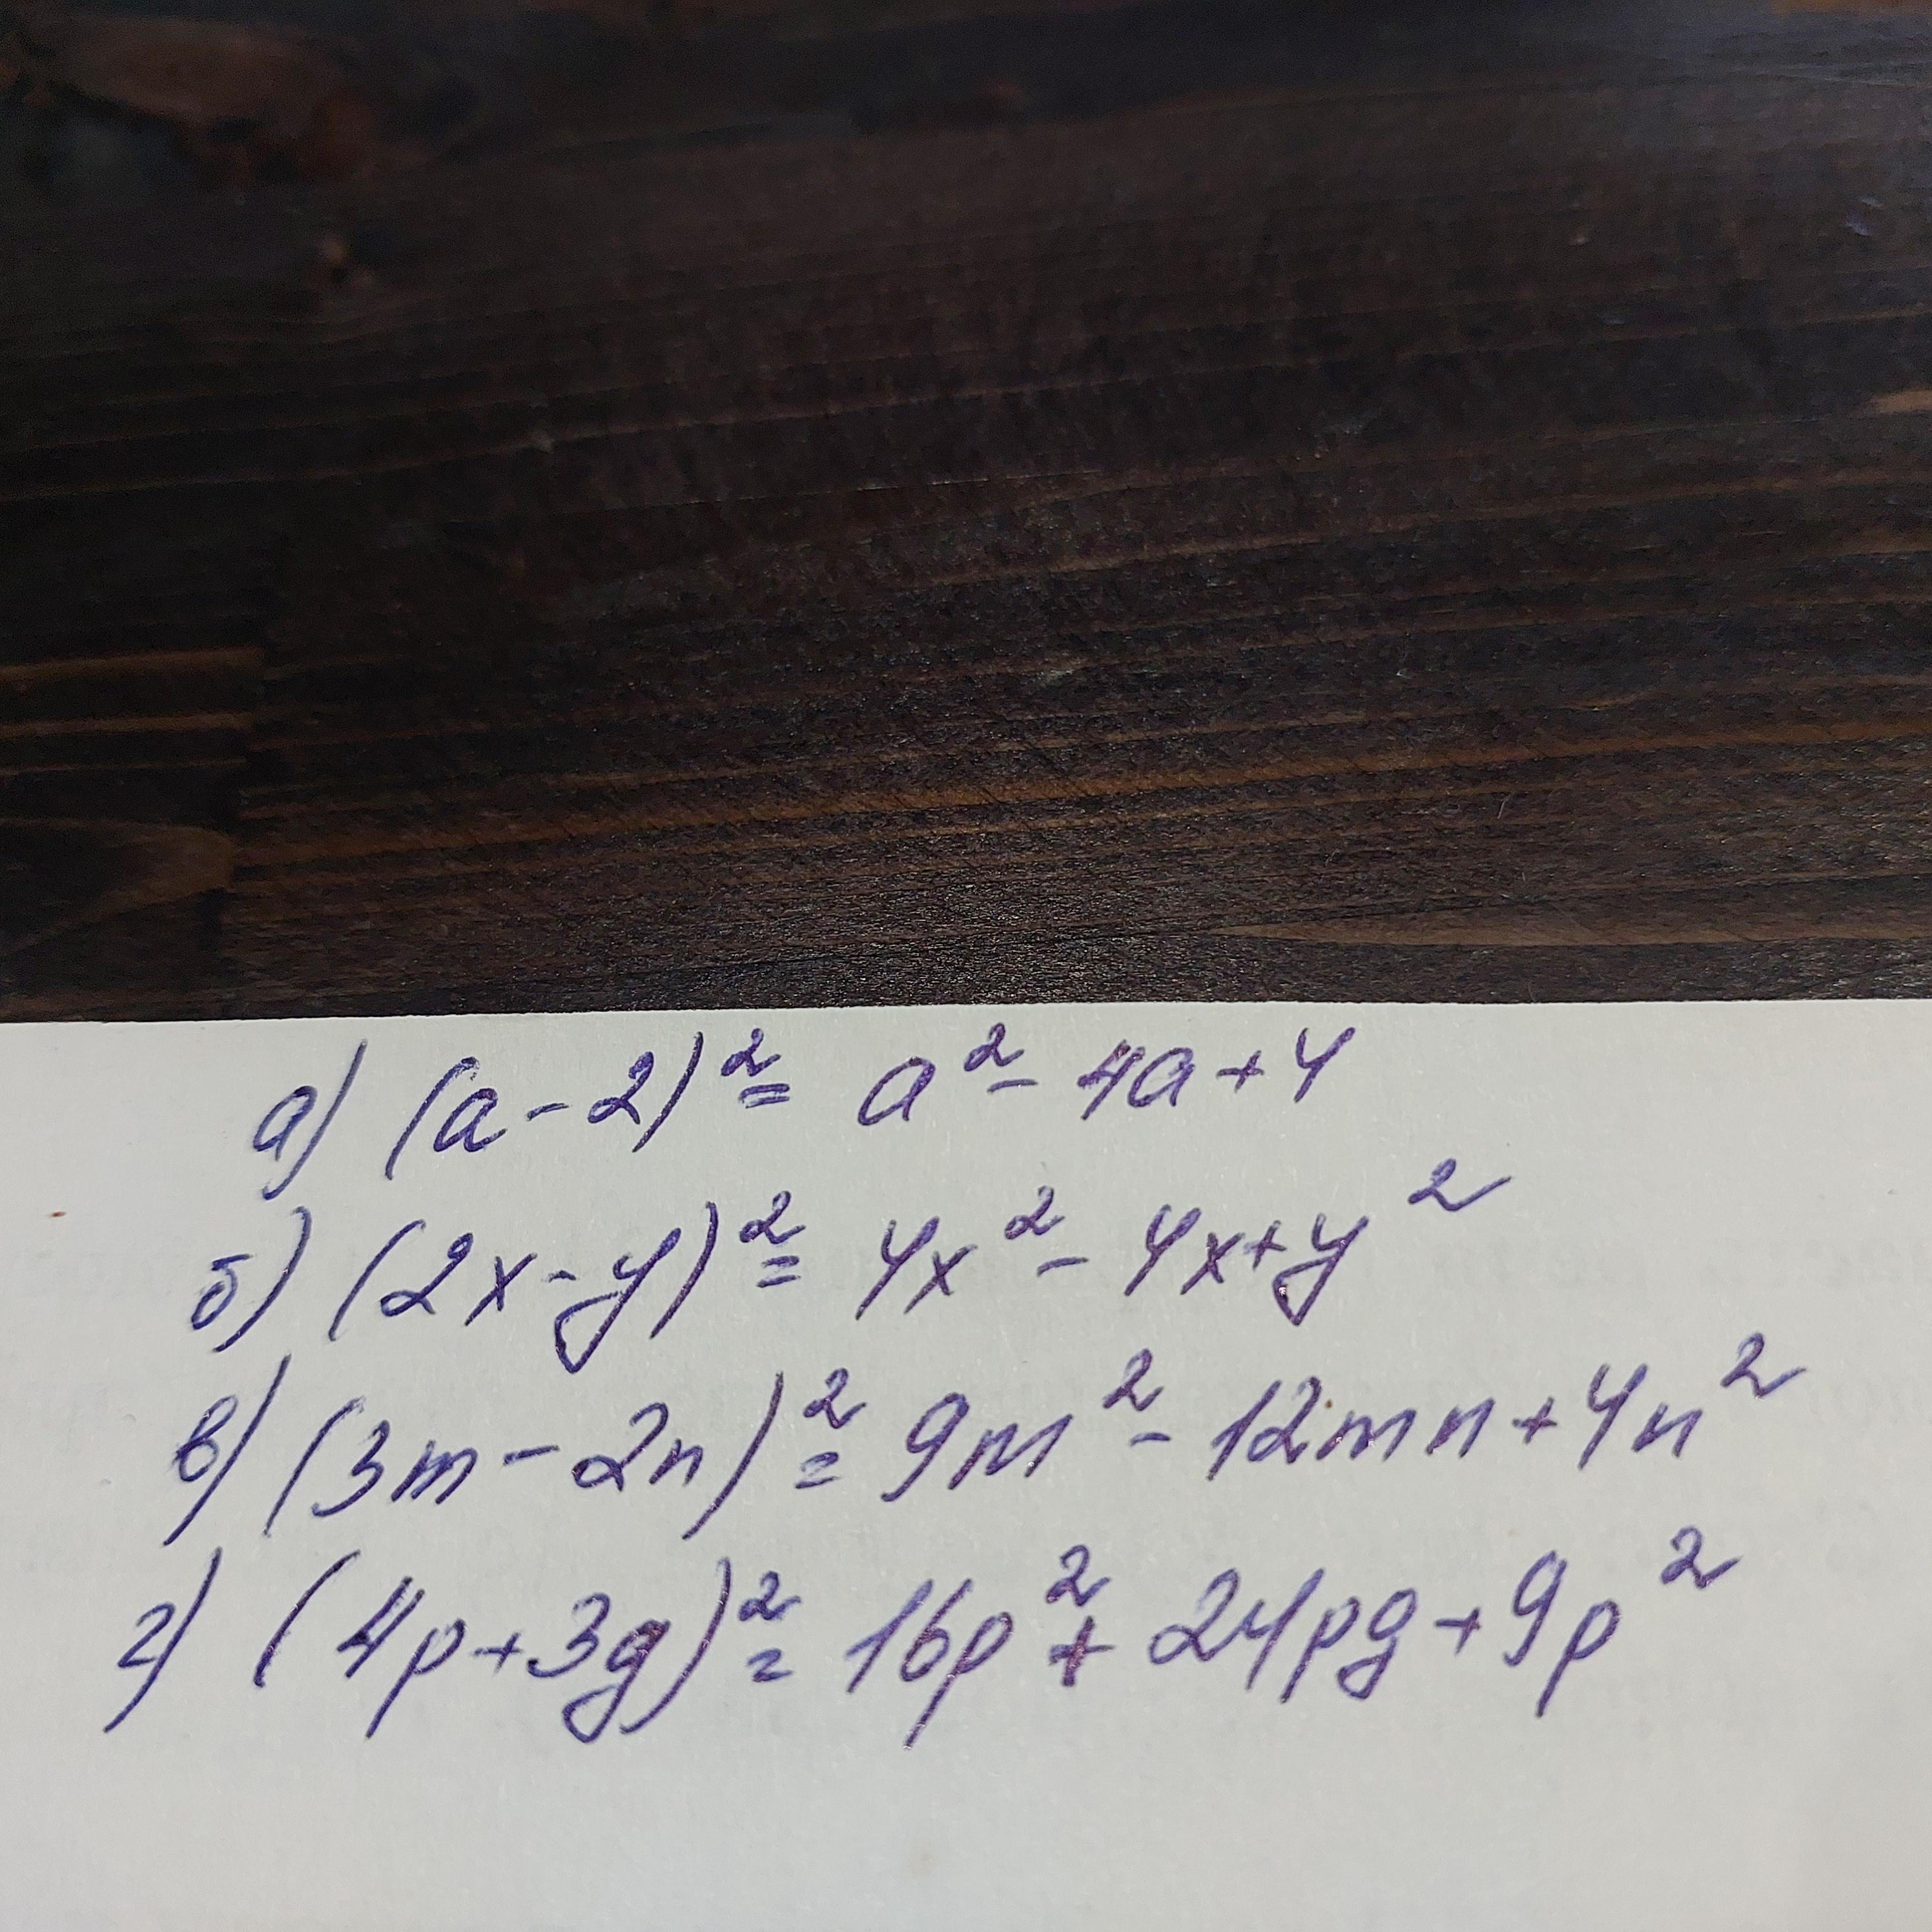 а) (a-2)²= a²- 4a+4
б) (2x-y)²= 4x²- 4x+y²
в) (3m-2n)²= 9m²- 12mn+4n²
г) (4p+3g)²= 16p²+ 24pg+9p²